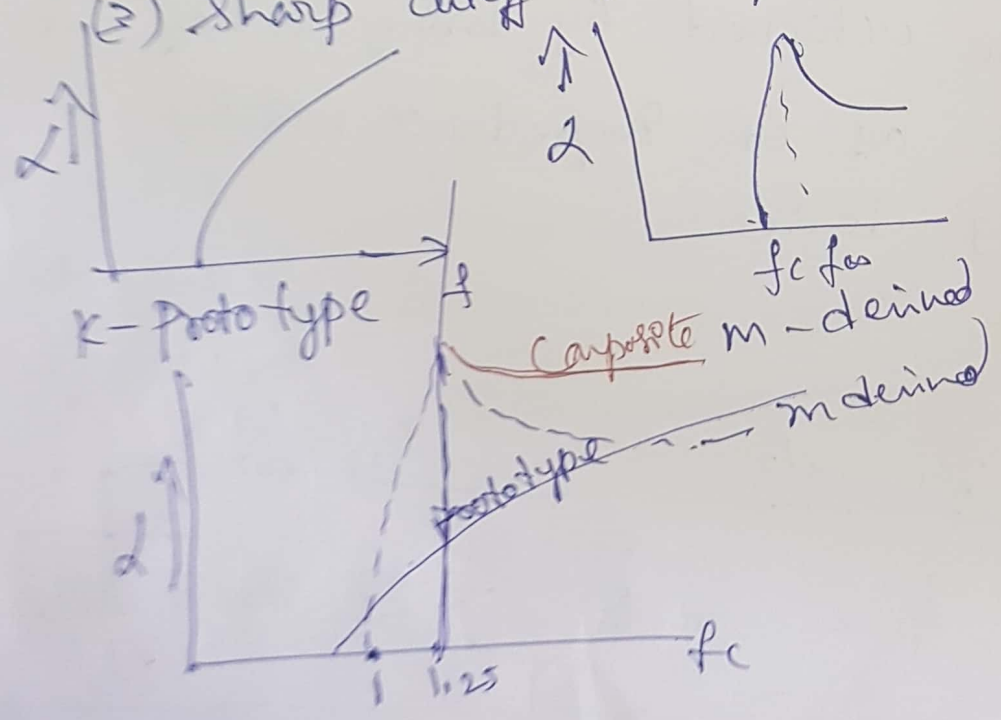 (3) Sharp
α
α
f
fc f∞
K-Prototype
m-derived
Composite
m derived
Prototype
α
fc
1
1.25